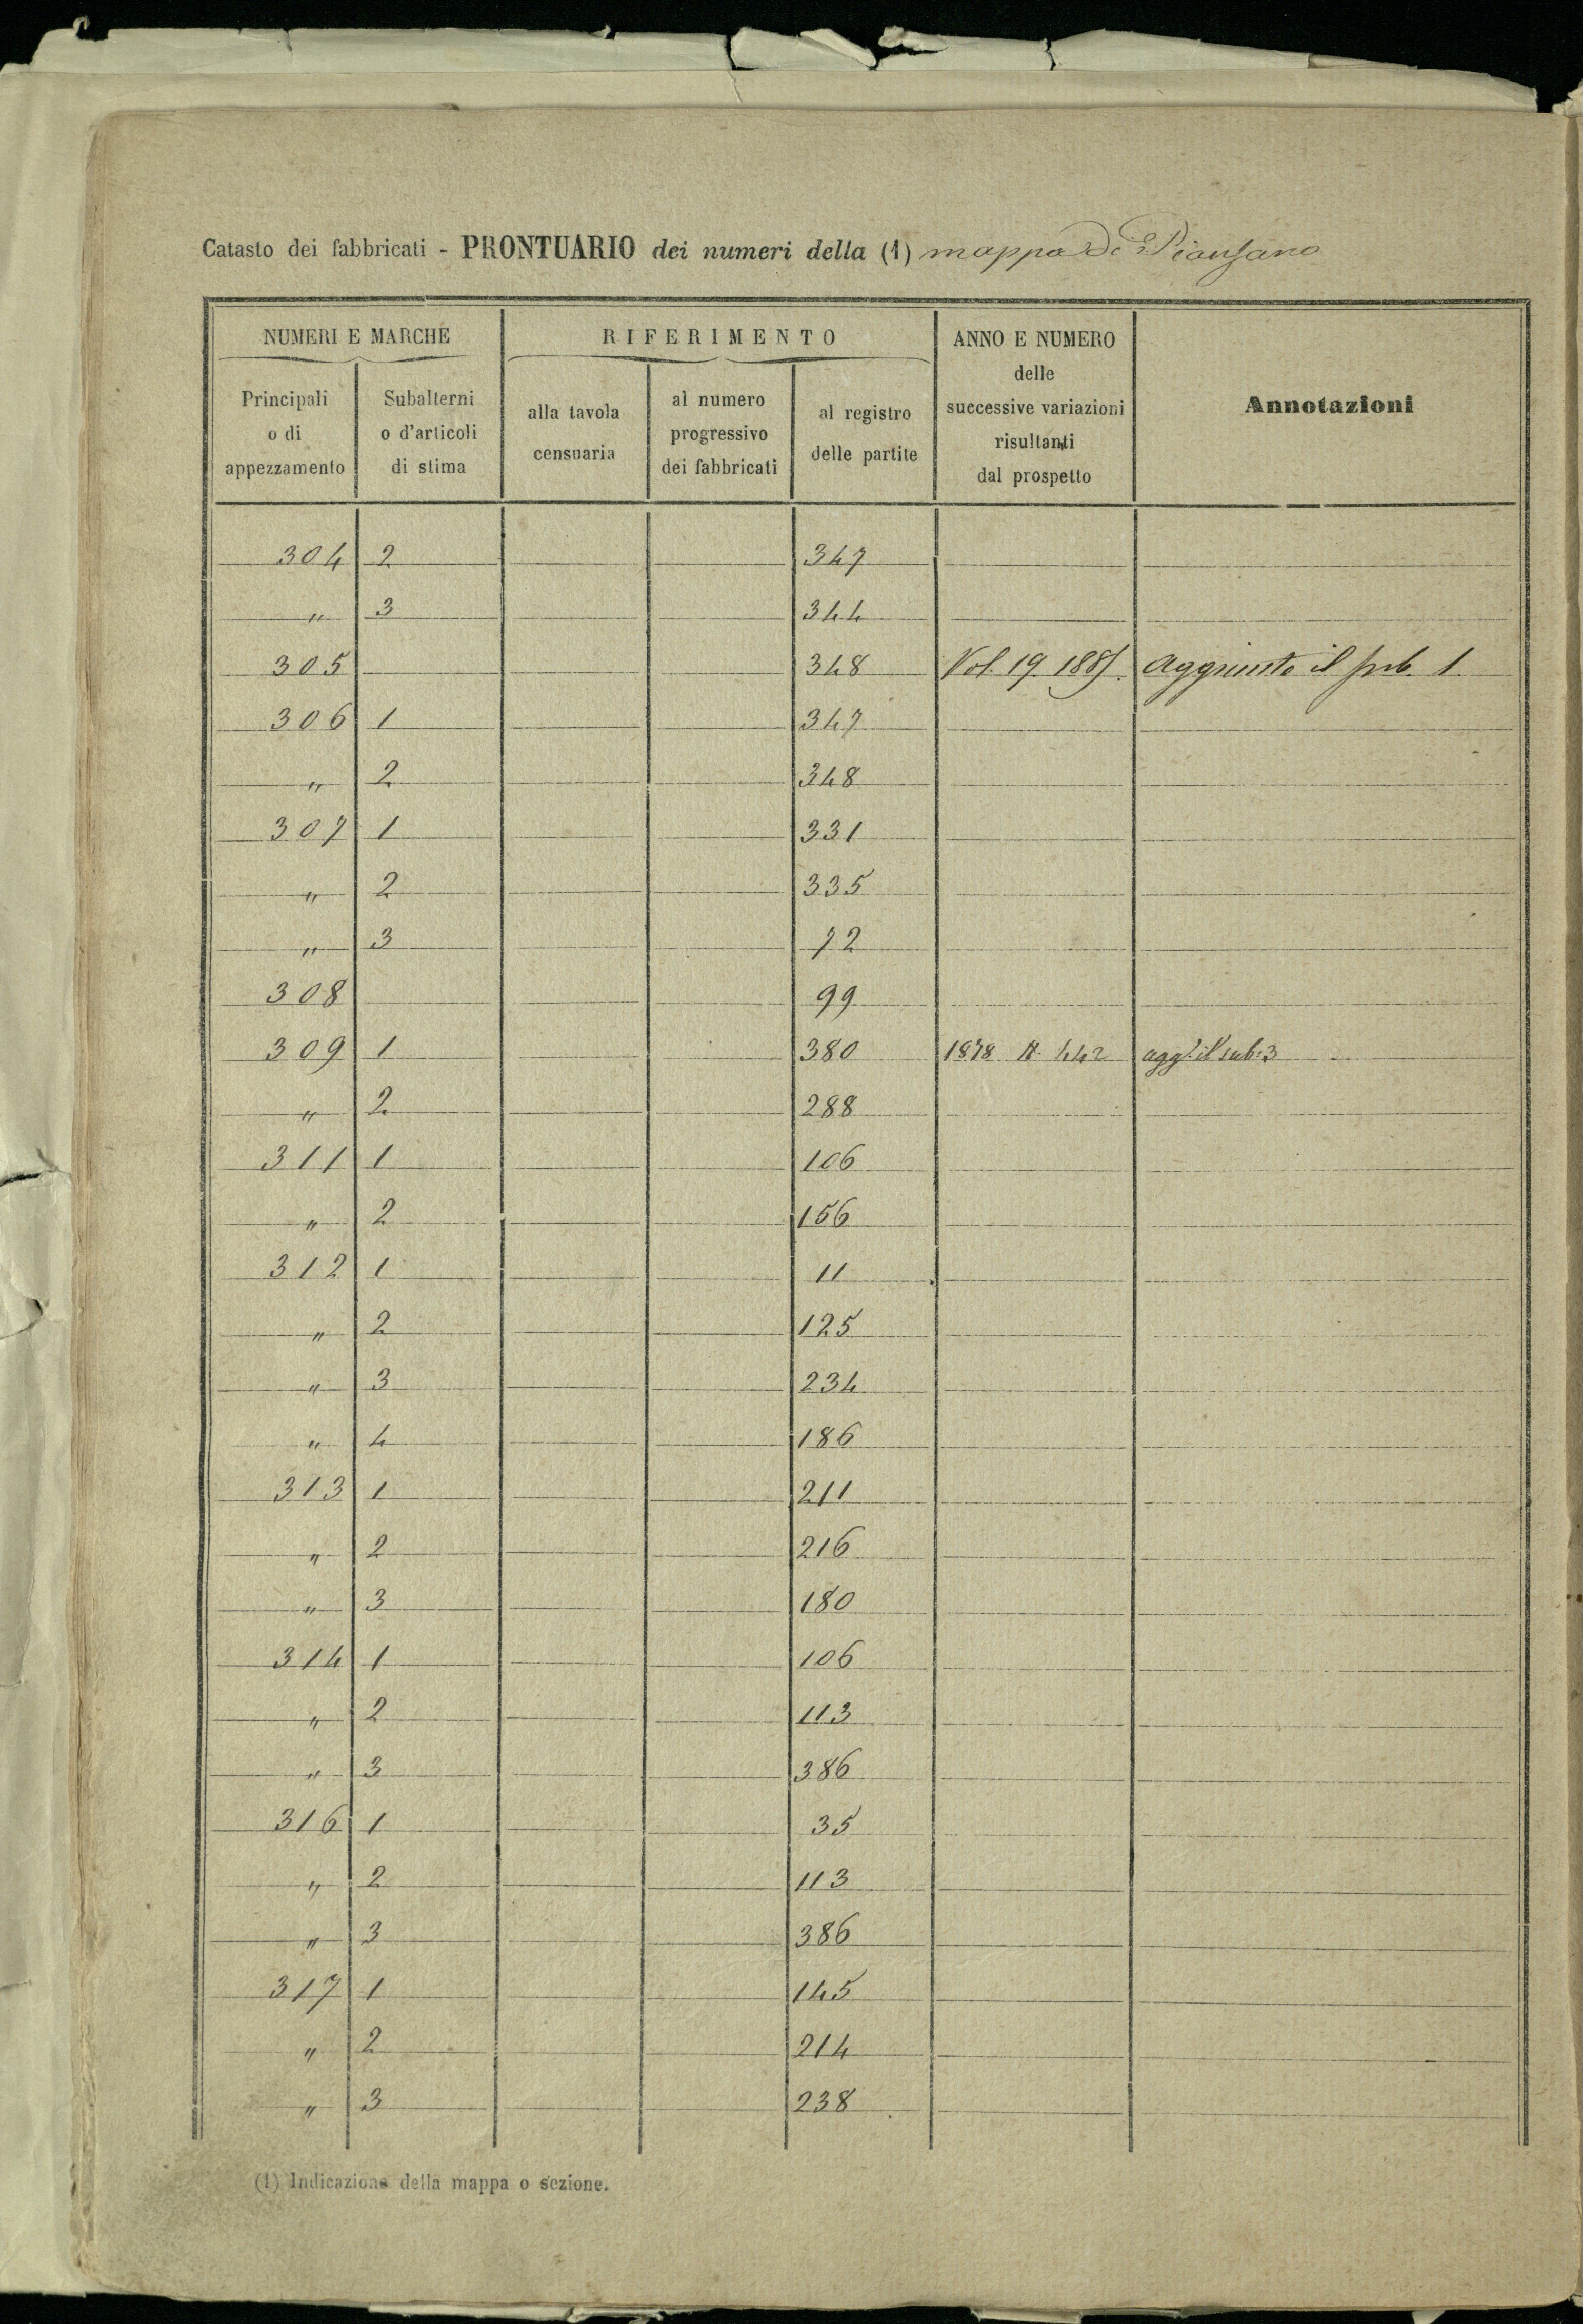 Catasto dei fabbricati - PRONTUARIO dei numeri della (1) mappa di Piansano
NUMERI E MARCHE
RIFERIMENTO
ANNO E NUMERO
delle
successive variazioni
risultanti
dal prospetto
Annotazioni
Principali
o di
appezzamento
Subalterni
o d'articoli
di stima
alla tavola
censuaria
al numero
progressivo
dei fabbricati
al registro
delle partite
304 2 347
" 3 344
305 348 Vol. 19. Aggiunto il sub. 1.
306 1 347
" 2 348
307 1 331
" 2 335
" 3 72
308 99
309 1 380 1878 N. 442 aggto. il sub: 3
" 2 288
311 1 106
" 2 156
312 1 11
" 2 125
" 3 234
" 4 186
313 1 211
" 2 216
" 3 180
314 1 106
" 2 113
" 3 386
316 1 35
" 2 113
" 3 386
317 1 145
" 2 214
" 3 238
(1) Indicazione della mappa o sezione.